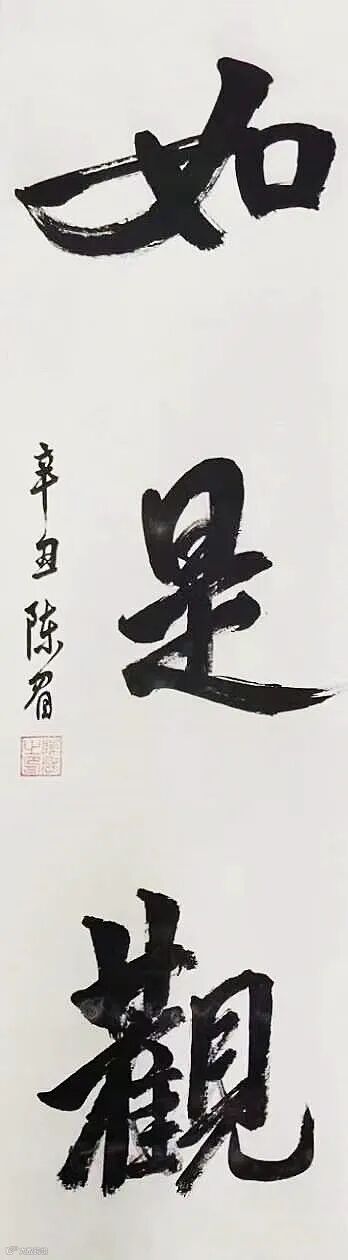 如是觀
辛丑陈眉